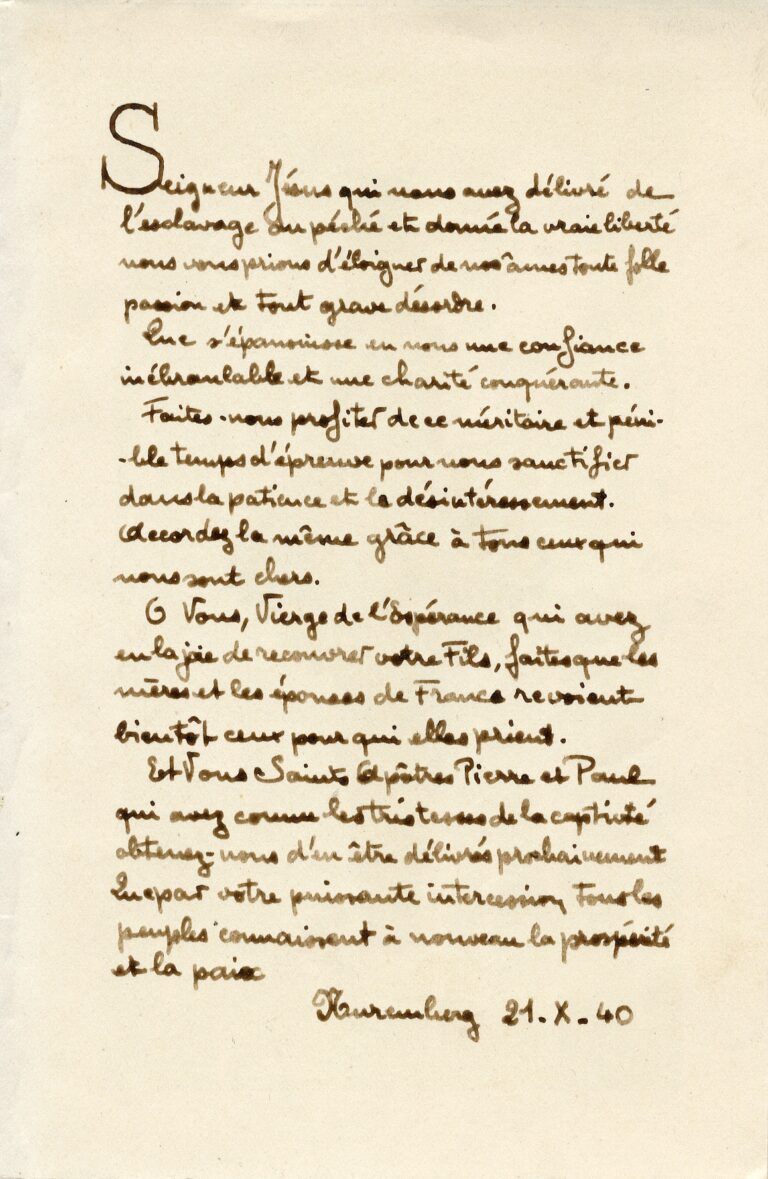 Seigneur Jésus qui nous avez délivré de
l'esclavage du péché et donné la vraie liberté
nous vous prions d'éloigner de nos âmes toute folle
passion et tout grave désordre.
Que s'épanouisse en nous une confiance
inébranlable et une charité conquérante.
Faites-nous profiter de ce méritoire et péni-
-ble temps d'épreuve pour nous sanctifier
dans la patience et le désintéressement.
Accordez la même grâce à tous ceux qui
nous sont chers.
O Vous, Vierge de l'Espérance qui avez
eu la joie de recouvrer votre Fils, faites que les
mères et les épouses de France revoient
bientôt ceux pour qui elles prient.
Et Vous Saints Apôtres Pierre et Paul
qui avez connu les tristesses de la captivité
obtenez-nous d'en être délivrés prochainement
Que par votre puissante intercession, tous les
peuples connaissent à nouveau la prospérité
et la paix
Nuremberg 21-X-40